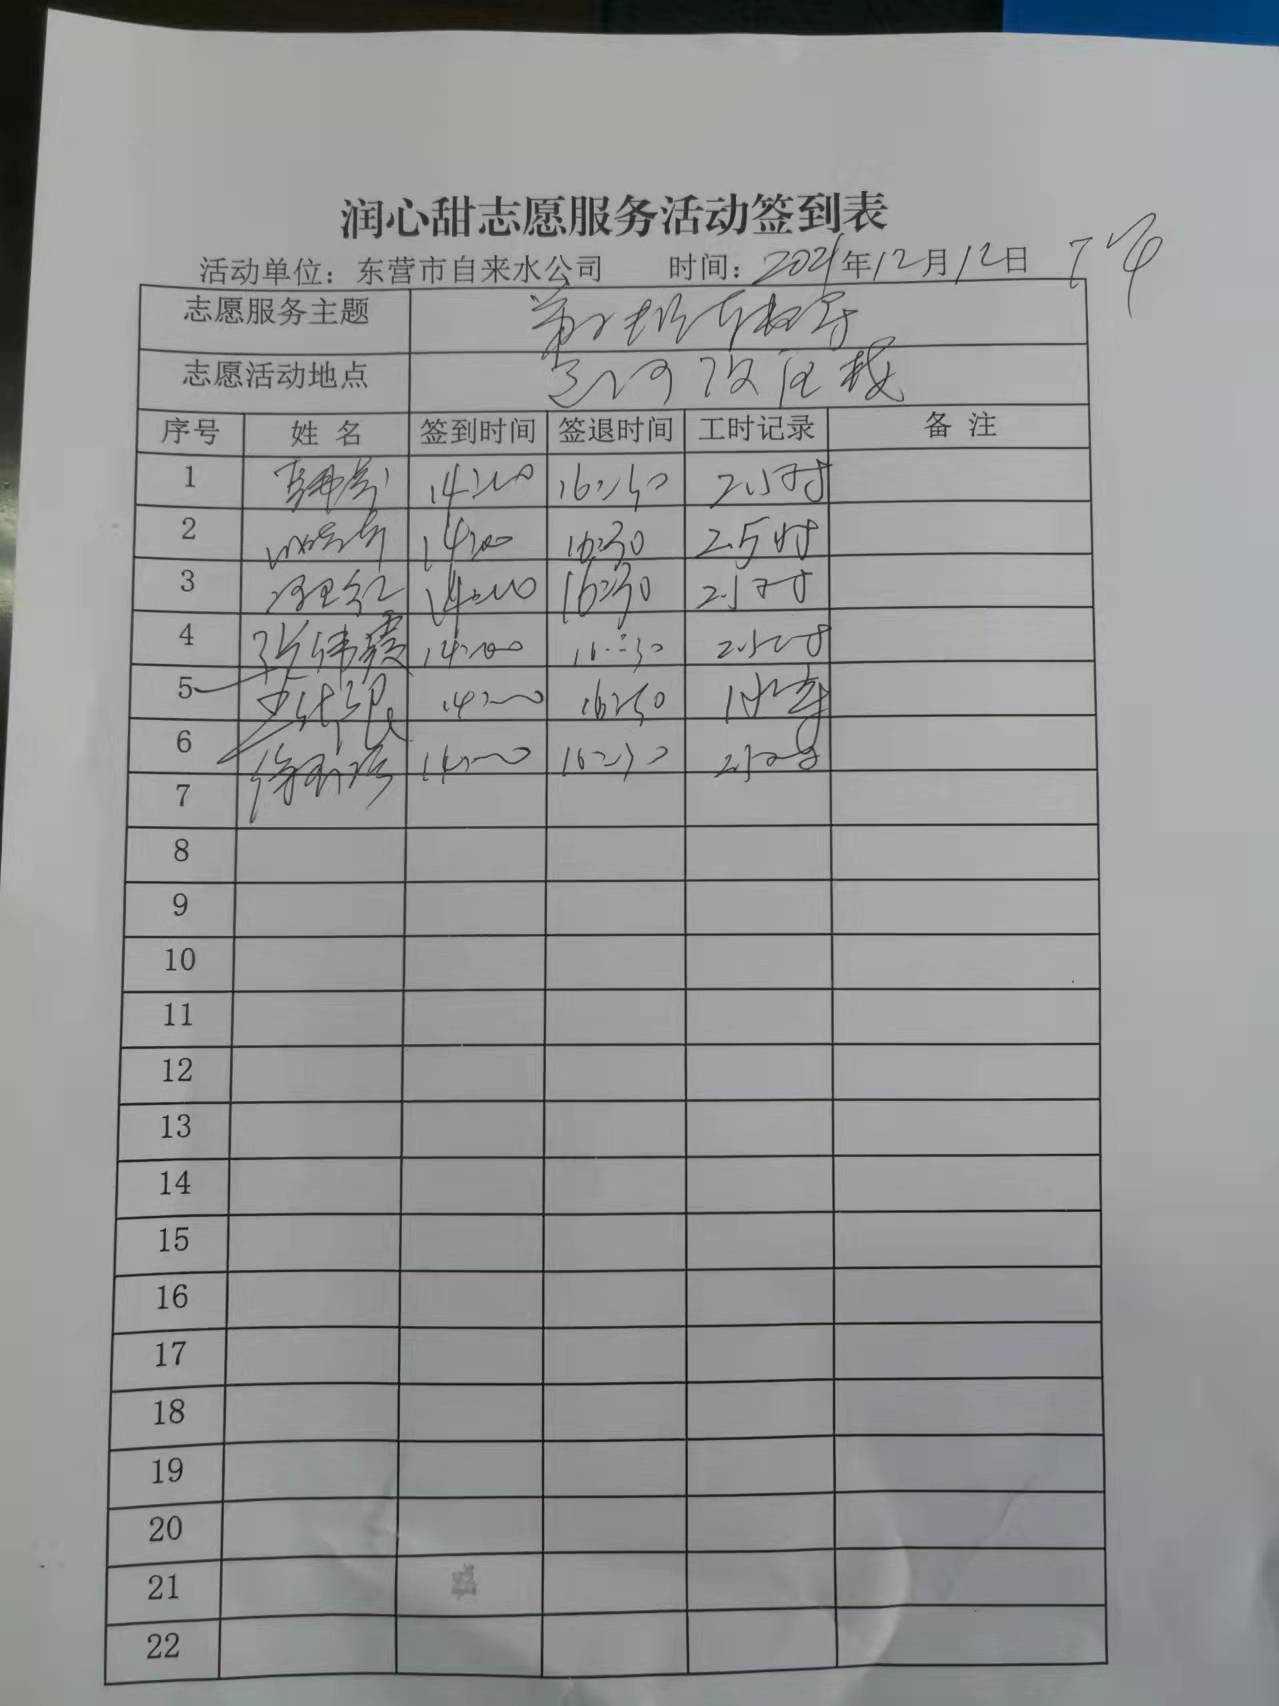 润心甜志愿服务活动签到表
活动单位：东营市自来水公司 时间：2021年12月12日 下午
志愿服务主题
志愿活动地点
序号 姓名 签到时间 签退时间 工时记录 备注
1 14:00 16:30 2.5时
2 14:00 16:30 2.5时
3 14:00 16:30 2.5时
4 张伟霞 14:00 16:30 2.5时
5 14:00 16:30
6 14:00 16:30
7
8
9
10
11
12
13
14
15
16
17
18
19
20
21
22